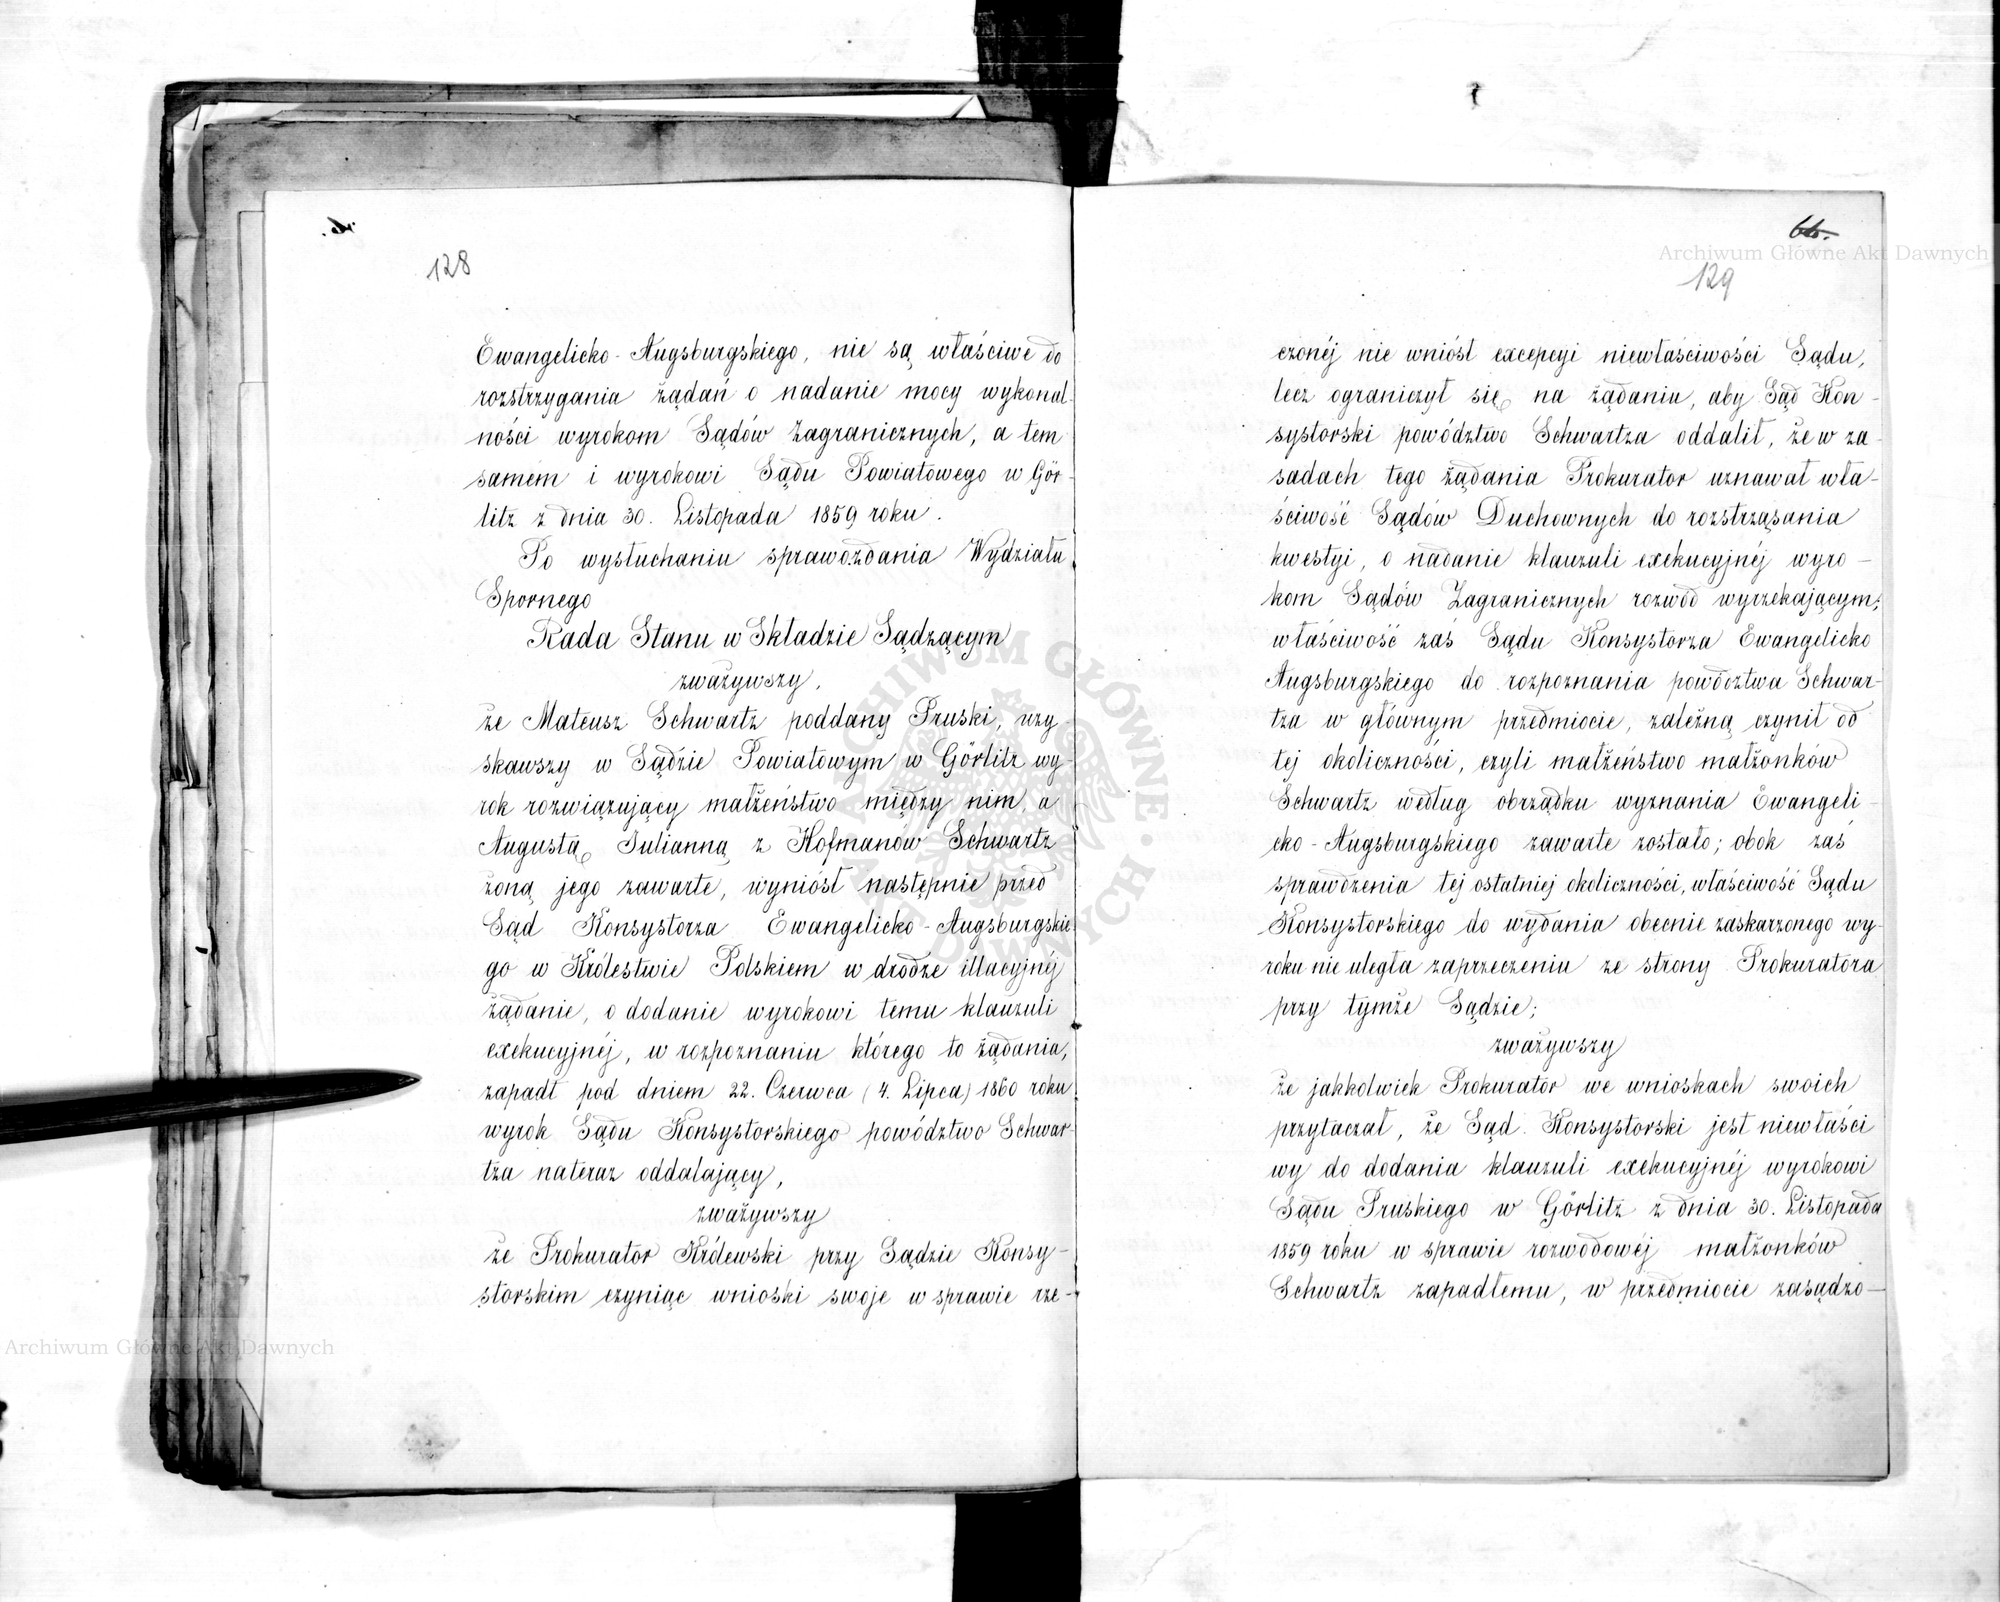 128
Ewangelicko-Augsburgskiego, nie są właściwe do
rozstrzygania żądań o nadanie mocy wykonal-
ności wyrokom Sądów Zagranicznych, a tem
samém i wyrokowi Sądu Powiatowego w Gör-
litz z dnia 30. Listopada 1859 roku.
Po wysłuchaniu sprawozdania Wydziału
Spornego
Rada Stanu w Składzie Sądzącym
zważywszy,
że Mateusz Schwartz poddany Pruski, uzy-
skawszy w Sądzie Powiatowym w Görlitz wy-
rok rozwiązujący małżeństwo między nim, a
Augustą Julianną z Hofmanów Schwartz
żoną jego zawarte, wyniósł następnie przed
Sąd Konsystorza Ewangelicko-Augsburgskie-
go w Królestwie Polskiem w drodze illacyjnéj
żądanie, o dodanie wyrokowi temu klauzuli
exekucyjnéj, w rozpoznaniu którego to żądania,
zapadł pod dniem 22. Czerwca (4. Lipca) 1860 roku
wyrok Sądu Konsystorskiego powództwo Schwar-
tza nateraz oddalający,
zważywszy
że Prokurator Królewski przy Sądzie Konsy-
storskim czyniąc wnioski swoje w sprawie rze-
66.
Archiwum Główne Akt Dawnych
129
czonéj nie wniósł excepcyi niewłaściwości Sądu,
lecz ograniczył się na żądaniu, aby Sąd Kon-
systorski powództwo Schwartza oddalił, że w za-
sadach tego żądania Prokurator uznawał wła-
ściwość Sądów Duchownych do rozstrząsania
kwestyi, o nadanie klauzuli exekucyjnéj wyro-
kom Sądów Zagranicznych rozwód wyrzekającym;
właściwość zaś Sądu Konsystorza Ewangelicko
Augsburgskiego do rozpoznania powództwa Schwar-
tza w głównym przedmiocie, zależną czynił od
tej okoliczności, czyli małżeństwo małżonków
Schwartz według obrządku wyznania Ewangeli-
cko-Augsburgskiego zawarte zostało; obok zaś
sprawdzenia tej ostatniej okoliczności, właściwość Sądu
Konsystorskiego do wydania obecnie zaskarzonego wy-
roku nie uległa zaprzeczeniu ze strony Prokuratora
przy tymże Sądzie;
zważywszy
że jakkolwiek Prokurator we wnioskach swoich
przytaczał, że Sąd Konsystorski jest niewłaści
wy do dodania klauzuli exekucyjnéj wyrokowi
Sądu Pruskiego w Görlitz z dnia 30. Listopada
1859 roku w sprawie rozwodowéj małżonków
Schwartz zapadłemu, w przedmiocie zasądzo-
ARCHIWUM GŁÓWNE AKT DAWNYCH
Archiwum Główne Akt Dawnych